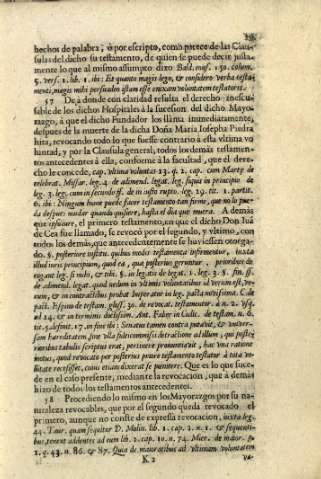 hechos de palabra; ò por escripto, como parece de las Clau-
sulas del dicho su testamento, de quien se puede decir justa-
mente lo que al mismo assumpto dixo Bald. conf. 150. colum.
5. vers. 1. lib. 1. ibi: Et quanto magis lego, & considero verba testa-
menti, magis mihi persuadeo istam esse
57 De adonde con claridad resulta el derecho inescu-
sable de los dichos Hospitales à la sucesion del dicho Mayo-
razgo, à que el dicho Fundador los llama immediatamente,
despues de la muerte de la dicha Doña Maria Iosepha Piedra
hita, revocando todo lo que fuesse contrario à esta vltima vo
luntad, y por la Clausula general, todos los demás testamen-
tos antecedentes à ella, conforme à la facultad, que el dere-
cho le concede, cap. vltima voluntas 13. q. 2. cap. cum Martę de
celebrat. Missar. leg. 4. de adimend. legat. leg. si quis in principio de
leg. 3. leg. cum in secundo ff. de leg. 29. tit. 1. partit.
6. ibi: Ninguno home puede facer testamento tan firme, que no lo pue-
da despues mudar quando quisiere, hasta el dia que muera. A demás
que el primero testamento, en que el dicho Don Iuā
de Cea fue llamado, se revocò por el segundo, y vltimo, con
todos los demás, que antecedentemente se huviessen otorga-
do. §. posteriore instit. quibus modis testamenta infirmentur, iuxta
illud iuris principium, quod ea, que posterius geruntur, prioribus de
rogant leg. si mihi, & tibi, §. in legatis de legat. 1. leg. 3. §. fin. ff.
de adimend. legat. quod nedum in vltimis voluntatibus ad verum est, ve-
rum, & in contractibus probat Imperator in leg. pacta novissima. C. de
pact. Espin. de testam. glos. 30. de revocat. testamentor. à n. 2. vsq.
ad 14. & in terminis dicisium. Ant. Faber in Codic. de testam. n. 6.
tit. 5. defin. 17. in fine ibi: Senatus tamen contra putavit, & vniver-
sam hæreditatem sine vlla fideicommissi detractione ad illum, qui poste-
rioribus tabulis scriptus erat, pertinere pronuntiavit, hac vna ratione
motus, quod revocate per posterius priore testamento testator à tota vo-
luntate recessisset, cuius etiam dixerat se pœnitere: Que es lo que suce-
de en el caso presente, mediante la revocacion, que à demás
hizo de todos los testamentos antecedentes.
58 Procediendo lo mismo en los Mayorazgos por su na-
turaleza revocables, que por el segundo queda revocado el
primero, aunque no conste de expressa revocacion, iuxta leg.
44. Taur. quam sequitur D. Molin. lib. 1. cap. 2. n. 1. & sequenti-
bus, tenent addentes ad eum lib. 2. cap. 10. n. 74. Mier. de maior. p.
1. §. 43. n. 86. & 87. Quia de maioratibus ad vltimam voluntatem
K 2 va-